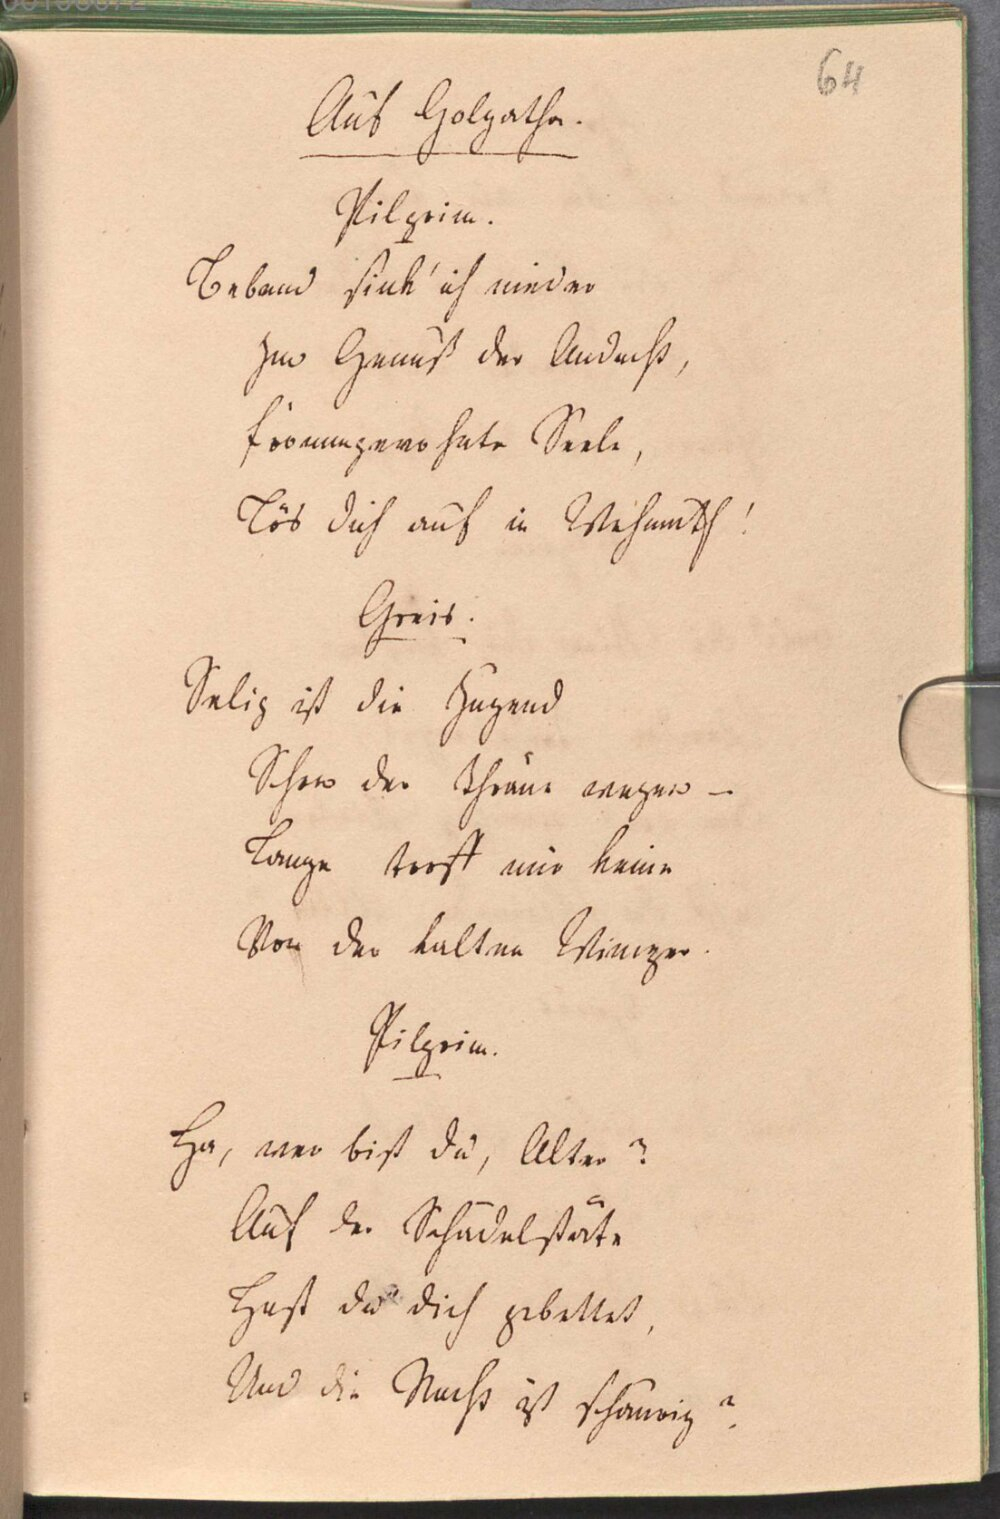 64
Auf Golgatha.
Pilgrim.
Bebend sink' ich nieder
Im Genuß der Andacht,
Seele,
Lös dich auf in Wehmuth!
Greis.
Selig ist die Jugend
Schon der Thräne wegen –
Lange troff mir keine
Von der kalten Wimper.
Pilgrim.
Ha, wer bist du, Alter?
Auf der Schädelstäte
Hast du dich gebettet,
Und die Nacht ist schaurig?